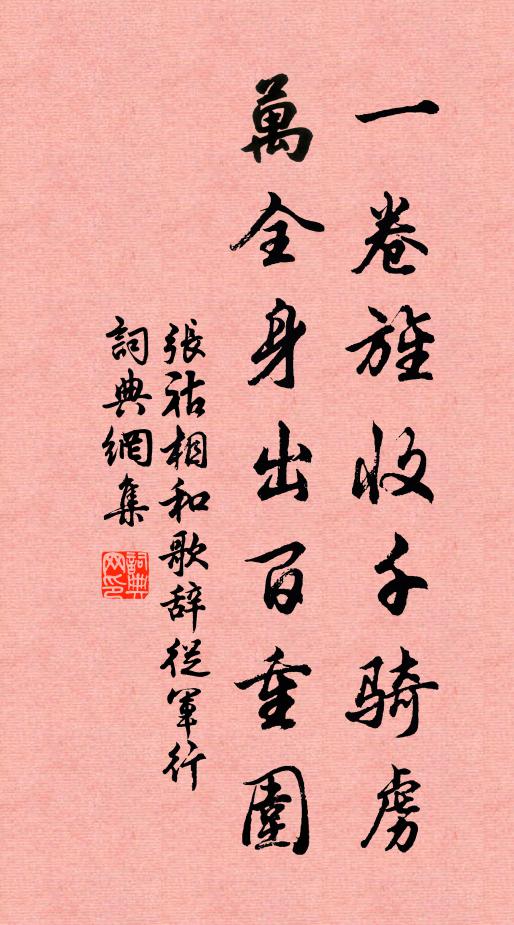 一卷旌收千騎虜
萬全身出百重圍
張祜相和歌辞從軍行
詞典網集
詞典網印